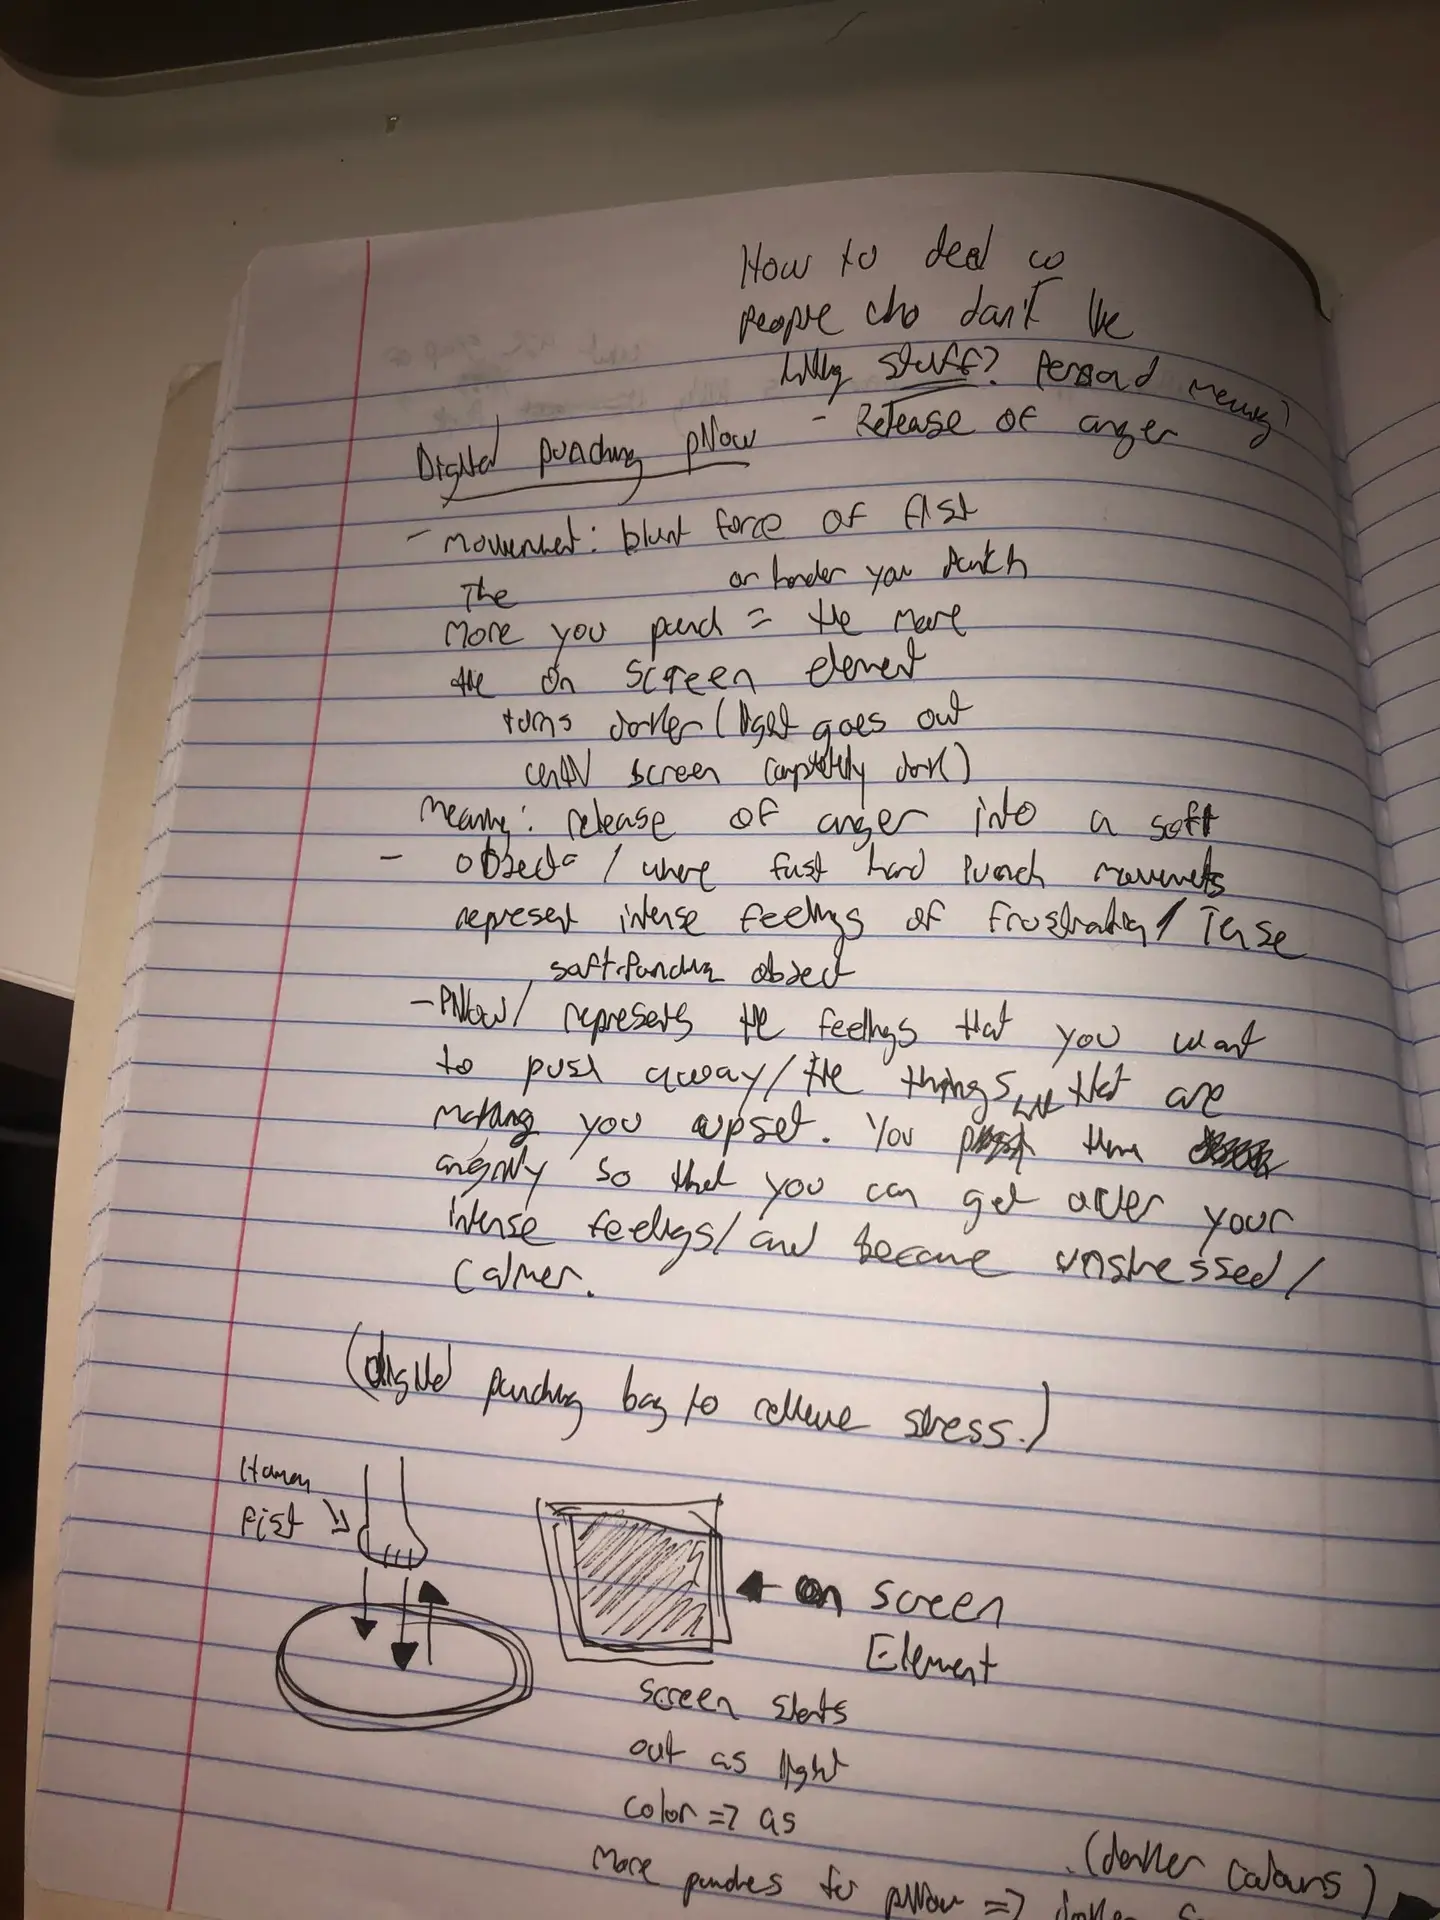 How to deal w
people who don't like
hitting stuff? Personal meaning?
Digital punching pillow - Release of anger
- movement: blunt force of fist
The or harder you punch
more you punch = the more
the on screen element
turns darker (light goes out
until screen completely dark)
Meaning: release of anger into a soft
- object / where fast hard punch movements
represent intense feelings of frustration / Tense
soft punching object
- Pillow / represents the feelings that you want
to push away / the things that are
making you upset. You them
angrily so that you can get over your
intense feelings / and become unstressed /
calmer.
(digital punching bag to relieve stress.)
Human
fist
on screen
Element
screen starts
out as light
color => as
(darker colours)
More punches for pillow => darker